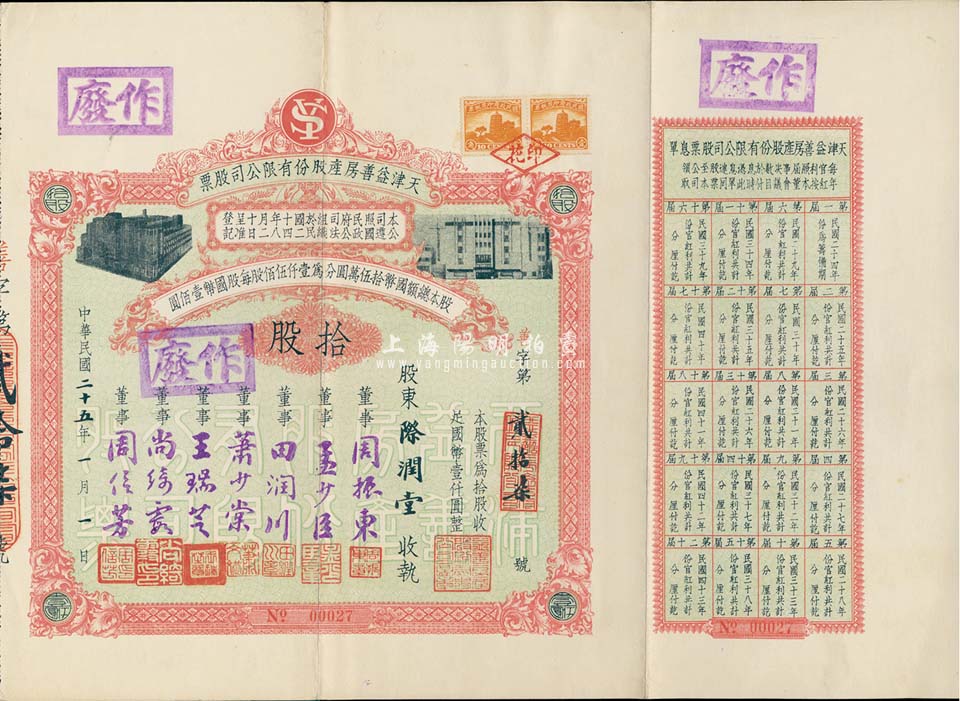 作廢
YS
天津益善房產股份有限公司股票
本公司遵照國民政府公司法組織於民國二十四年八月十二日呈准登記
股本總額國幣拾伍萬圓分為壹仟伍佰股每股國幣壹佰圓
拾股
作廢
字第貳拾柒號
本股票為拾股收足國幣壹仟圓整
股東 際潤堂 收執
董事 周振東
董事 孟少臣
董事 田潤川
董事 蕭少棠
董事 王瑞芝
董事 尚綺霞
董事 周信芳
中華民國二十五年一月一日
No 00027
印花
上海陽明拍賣
www.yangmingauction.com
作廢
天津益善房產股份有限公司股票息單
第一屆
民國二十四年份為籌備期
第二屆
民國二十五年份官紅利共計 分 厘付訖
第三屆
民國二十六年份官紅利共計 分 厘付訖
第四屆
民國二十七年份官紅利共計 分 厘付訖
第五屆
民國二十八年份官紅利共計 分 厘付訖
第六屆
民國二十九年份官紅利共計 分 厘付訖
第七屆
民國三十年份官紅利共計 分 厘付訖
第八屆
民國三十一年份官紅利共計 分 厘付訖
第九屆
民國三十二年份官紅利共計 分 厘付訖
第十屆
民國三十三年份官紅利共計 分 厘付訖
第十一屆
民國三十四年份官紅利共計 分 厘付訖
第十二屆
民國三十五年份官紅利共計 分 厘付訖
第十三屆
民國三十六年份官紅利共計 分 厘付訖
第十四屆
民國三十七年份官紅利共計 分 厘付訖
第十五屆
民國三十八年份官紅利共計 分 厘付訖
第十六屆
民國三十九年份官紅利共計 分 厘付訖
第十七屆
民國四十年份官紅利共計 分 厘付訖
第十八屆
民國四十一年份官紅利共計 分 厘付訖
第十九屆
民國四十二年份官紅利共計 分 厘付訖
第二十屆
民國四十三年份官紅利共計 分 厘付訖
No 00027